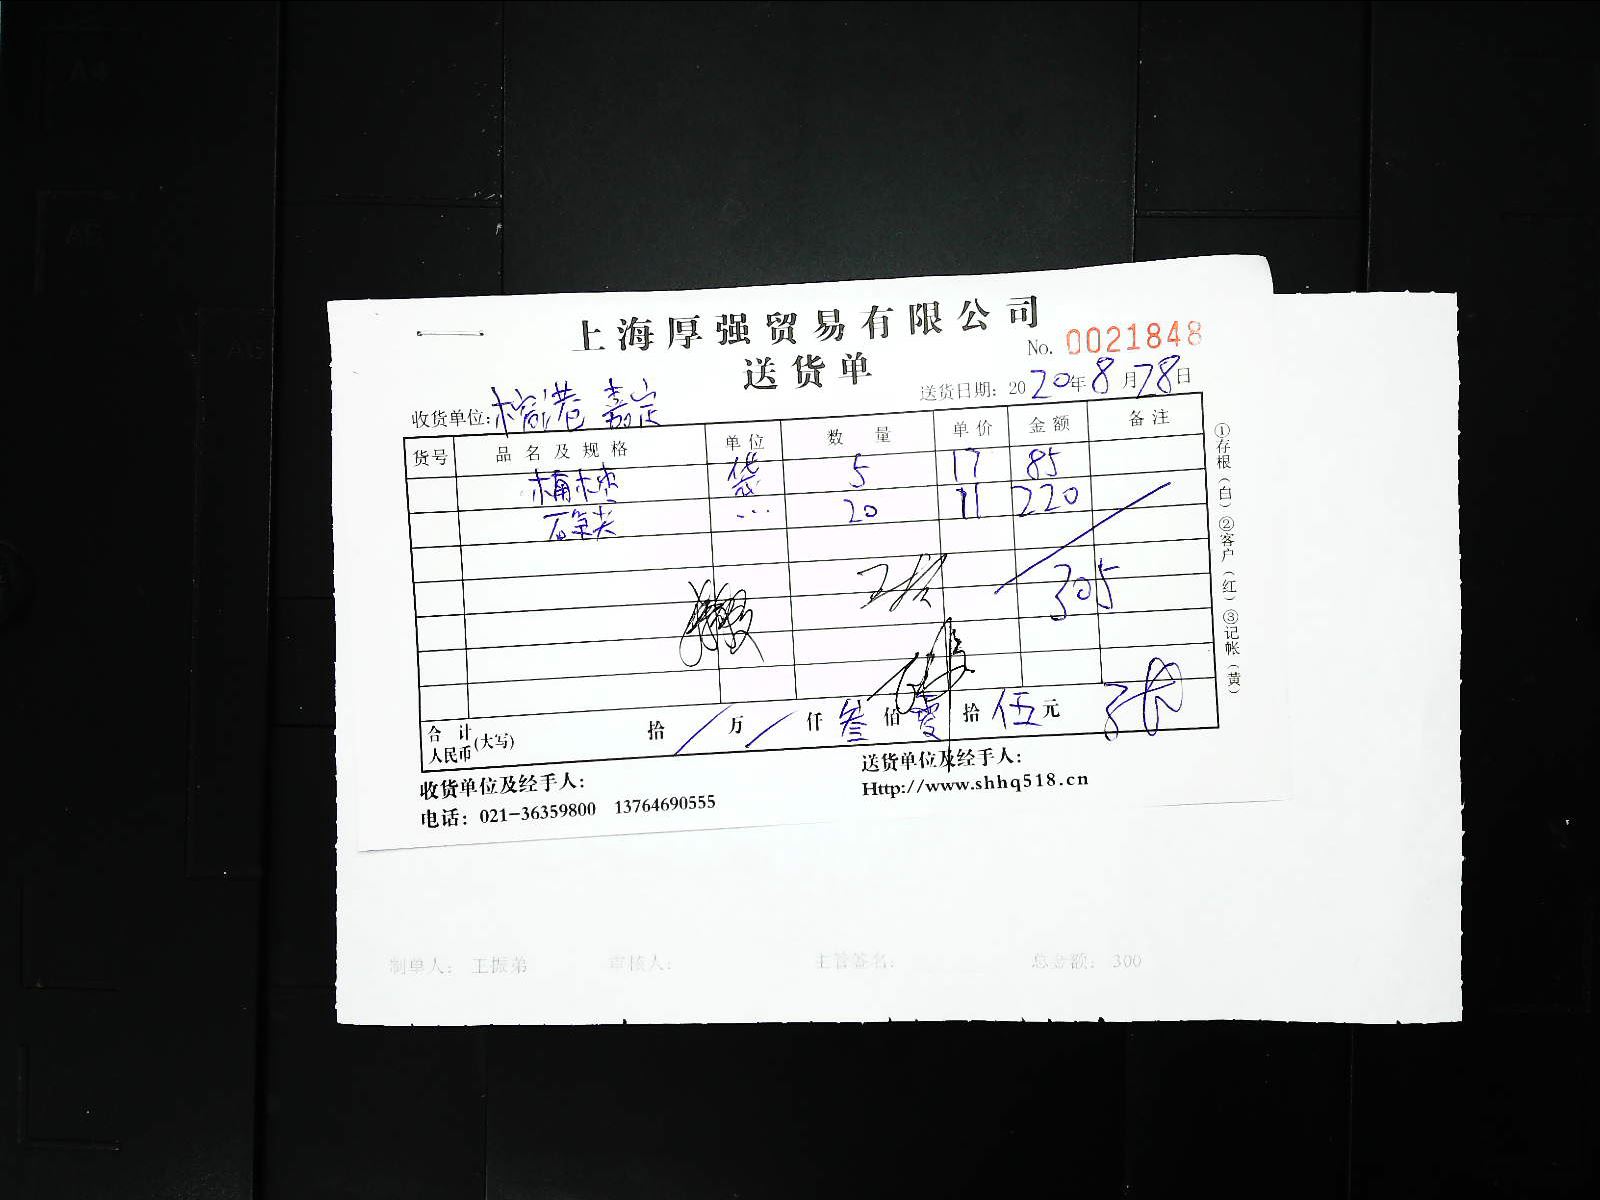 上海厚强贸易有限公司
送货单
No. 0021848
送货日期: 2020年8月28日
收货单位: 嘉定
货号 品名及规格 单位 数量 单价 金额 备注
袋 5 17 85
20 11 220
305
合计人民币(大写) 拾 / 万 / 仟 叁 佰 零 拾 伍 元
收货单位及经手人:
送货单位及经手人:
电话: 021-36359800 13764690555
Http://www.shhq518.cn
①存根(白)②客户(红)③记帐(黄)
制单人: 王振弟 审核人: 主管签名: 总金额: 300
A4
A5